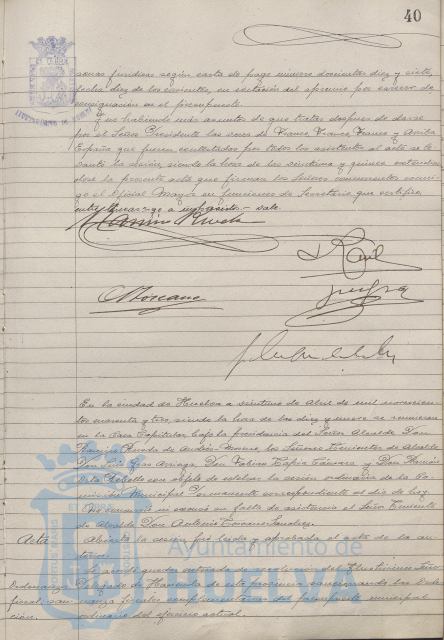 40
sonas jurídicas según carta de pago número doscientos diez y siete,
fecha diez de los corrientes, en evitación del apremio por carecer de
consignación en el presupuesto.
Y no habiendo más asuntos de que tratar después de darse
por el Señor Presidente las voces de Franco, Franco, Franco y Arriba
España que fueron contestadas por todos los asistentes al acto se le-
vantó la sesión, siendo la hora de las veintiuna y quince extendién-
dose la presente acta que firman los Señores concurrentes conmi-
go el Oficial Mayor en funciones de Secretario, que certifico,
vale.
En la ciudad de Huelva a veintiuno de Abril de mil novecien-
tos cuarenta y tres, siendo la hora de las diez y nueve se reunieron
en la Casa Capitular, bajo la presidencia del Señor Alcalde Don
Joaquín González de Andrés-Moreno, los Señores Tenientes de Alcalde
Don Luis Arriaga, Don Tafira Cámara y Don Ramón
Rebollo con objeto de celebrar la sesión ordinaria de la Co-
misión Municipal Permanente correspondiente al día de hoy.
No concurrió ni excusó su falta de asistencia el Señor Teniente
de Alcalde Don Antonio Sánchez.
Acta. Abierta la sesión fué leída y aprobada el acta de la an-
terior.
Ordenanzas
fiscal. san-
ción.
Se acordó quedar enterada de resolución del Ilustrísimo Señor
Delegado de Hacienda de esta provincia sancionando las Orde-
nanzas fiscales complementarias del presupuesto municipal
ordinario del ejercicio actual.
Ayuntamiento de
HUELVA